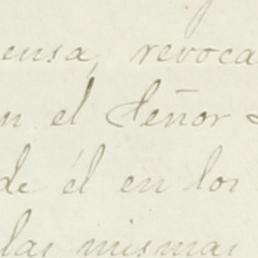 ensa, revoca
n el Señor
de él en los
las mismas